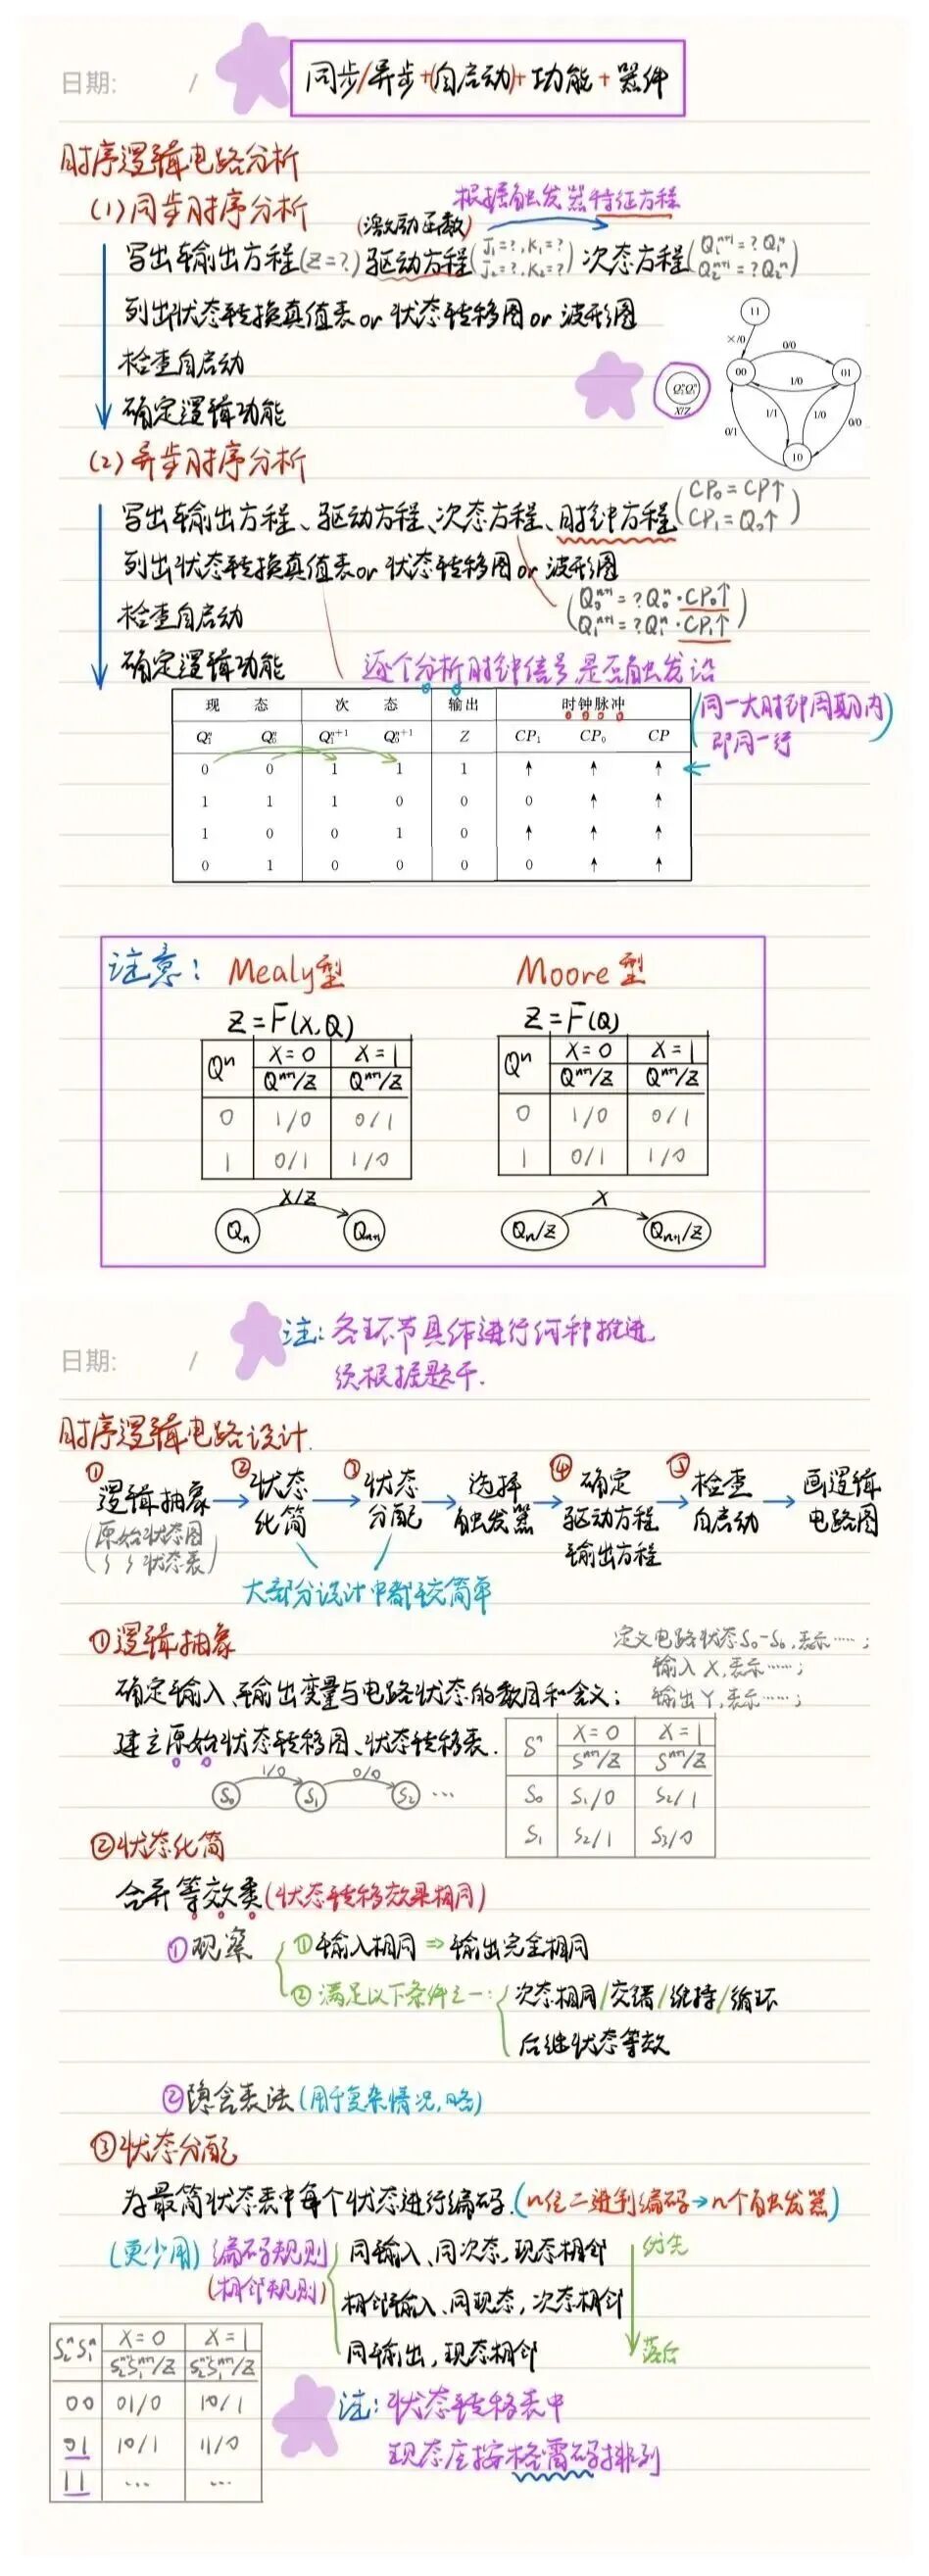 日期: /
同步/异步+(自启动)+功能+器件
时序逻辑电路分析
(1)同步时序分析
根据触发器特征方程
(激励函数)
写出输出方程(Z=?) 驱动方程(J₁=?,K₁=? J₂=?,K₂=?) 次态方程(Q₁ⁿ⁺¹=?Q₁ⁿ Q₂ⁿ⁺¹=?Q₂ⁿ)
列出状态转换真值表or状态转移图or波形图
检查自启动
确定逻辑功能
11
×/0
0/0
00
01
1/0
X/Z
1/1
1/0
0/1
0/0
10
(2)异步时序分析
写出输出方程、驱动方程、次态方程、时钟方程(CP₀=CP↑ CP₁=Q₀↑)
列出状态转换真值表or状态转移图or波形图
(Q₀ⁿ⁺¹=?Q₀ⁿ·CP₀↑ Q₁ⁿ⁺¹=?Q₁ⁿ·CP₁↑)
检查自启动
确定逻辑功能
逐个分析时钟信号是否触发沿
现 态 次 态 输出 时钟脉冲
(同一大时钟周期内)
即同一行
Q₁ⁿ Q₀ⁿ Q₁ⁿ⁺¹ Q₀ⁿ⁺¹ Z CP₁ CP₀ CP
0 0 1 1 1 ↑ ↑ ↑
1 1 1 0 0 0 ↑ ↑
1 0 0 1 0 ↑ ↑ ↑
0 1 0 0 0 0 ↑ ↑
注意: Mealy型 Moore型
Z=F(X,Q) Z=F(Q)
Qⁿ X=0 X=1 Qⁿ X=0 X=1
Qⁿ⁺¹/Z Qⁿ⁺¹/Z Qⁿ⁺¹/Z Qⁿ⁺¹/Z
0 1/0 0/1 0 1/0 0/1
1 0/1 1/0 1 0/1 1/0
X/Z X
Qn Qn+1 Qn/Z Qn+1/Z
注: 各环节具体进行何种推进
日期: /
须根据题干.
时序逻辑电路设计.
① ② ③ ④ ⑤
逻辑抽象→状态化简→状态分配→选择触发器→确定驱动方程输出方程→检查自启动→画逻辑电路图
(原始状态图 〃状态表)
大部分设计中都较简单
①逻辑抽象
定义电路状态S₀-S₆,表示……;
输入X,表示……;
确定输入、输出变量与电路状态的数目和含义;
输出Y,表示……;
建立原始状态转移图、状态转移表.
Sⁿ X=0 X=1
Sⁿ⁺¹/Z Sⁿ⁺¹/Z
1/0 0/0
S₀ S₁ S₂ …
S₀ S₁/0 S₂/1
S₁ S₂/1 S₃/0
②状态化简
合并等效类(状态转移效果相同)
①观察
①输入相同⇒输出完全相同
②满足以下条件之一:
次态相同/交错/维持/循环
后继状态等效
②隐含表法(用于复杂情况,略)
③状态分配
为最简状态表中每个状态进行编码.(n位二进制编码→n个触发器)
(更少用) 编码规则
(相邻规则)
同输入、同次态,现态相邻 优先
相邻输入、同现态,次态相邻
同输出,现态相邻 落后
S₂ⁿS₁ⁿ X=0 X=1
S₂ⁿ⁺¹S₁ⁿ⁺¹/Z S₂ⁿ⁺¹S₁ⁿ⁺¹/Z
00 01/0 10/1
01 10/1 11/0
11 … …
注: 状态转移表中
现态应按格雷码排列